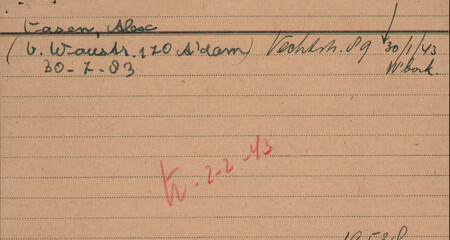 Casen, Alex
(v. Woustr. 170 A'dam) Vechtstr. 89 30/1/43
30-7-83 W'bork.
tr. 2-2-43